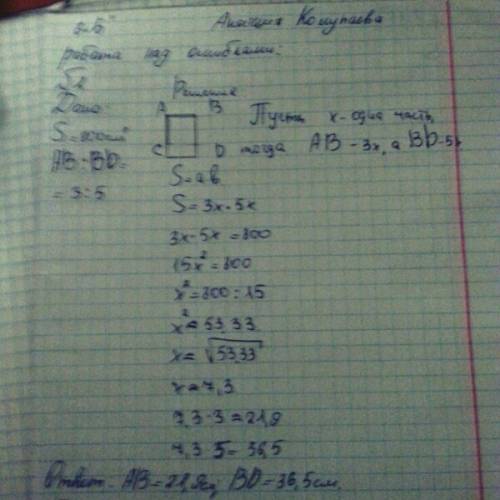 Анастасия Кошутаева
работа над ошибками:
Дано: Решение
A B Пусть x-одна часть,
S=800см²
C D тогда AB-3x, а BD-5x
AB:BD=
=3:5
S=ab
S=3x·5x
3x·5x=800
15x²=800
x²=800:15
x²=53,33
x=√53,33
x=7,3
7,3·3=21,9
7,3 5=36,5
Ответ: AB=21,9см, BD=36,5см.